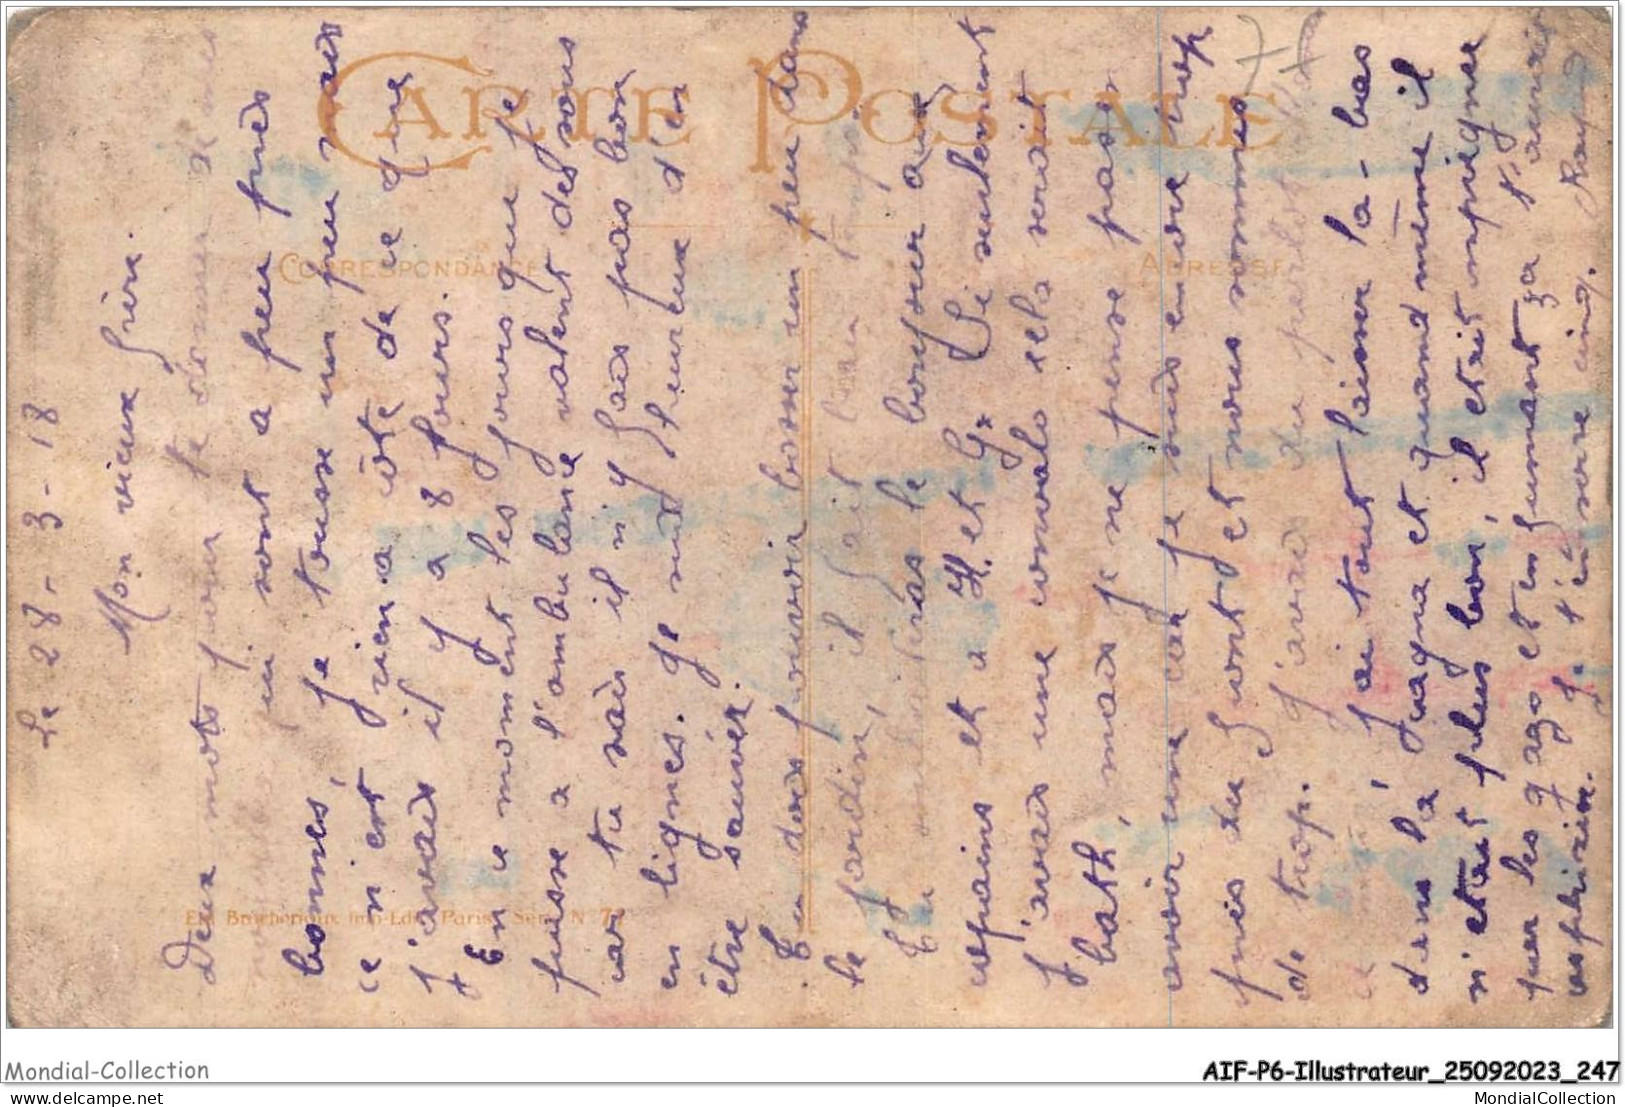 Le 28-3-18
Mon vieux frère.
Deux mots pour te donner de mes
qui sont a peu près
bonnes, je tousse un peu mais
ce n'est rien a côté de ce que
j'avais il y a 8 jours.
En ce moment les jours que je
passe a l'ambulance valent des sous
car tu sais il n'y fais pas bon
en lignes. Je suis heureux d'en
être sauvér.
Tu dois pouvoir bosser un peu dans
le jardin, il fait
Tu souhaiteras le bonjour aux
copains et a H. et G. Si seulement
j'avais une convalo cela serait
bath, mais je ne pense pas en
avoir une car je suis encore trop
près du front et nous sommes
de trop. J'avais du perlot
J'ai tout laisser la-bas
dans la et quand même il
n'était plus bon, il était imprégner
par les gazs et en fumant ça t'aurais
asphixier. Je t'en serre cinq. Raymond
CARTE POSTALE
CORRESPONDANCE
ADRESSE
Imp-Edit. Paris. Série N° 77
Mondial-Collection
AIF-P6-Illustrateur_25092023_247
delcampe.net
MondialCollection